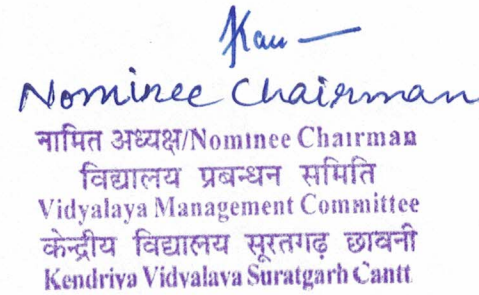 Nominee Chairman
नामित अध्यक्ष/Nominee Chairman
विद्यालय प्रबन्धन समिति
Vidyalaya Management Committee
केन्द्रीय विद्यालय सूरतगढ़ छावनी
Kendriya Vidyalaya Suratgarh Cantt